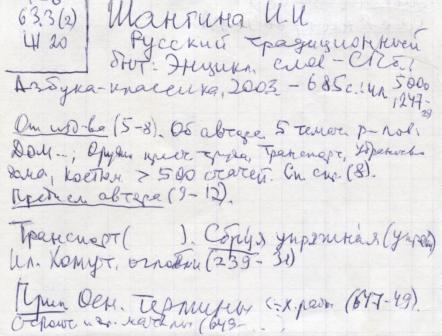 63.3(2)
Ш 20
Шангина И.И
Русский традиционный
быт: Энцикл. слов – СПб.:
Азбука-классика, 2003. – 685с.: ил 5000
От изд-ва (5-8). Об авторе. 5 темат. р-лов:
Дом...; Орудия труда, Транспорт, Убранство
дома, Костюм > 500 статей. Сп сцр. (8).
автора (9-12).
Транспорт( ). Сбруя упряжная (
Ил. Хомут, оглобли (239-
Прил Осн. термины с-х. работ (647-49).
(649-...